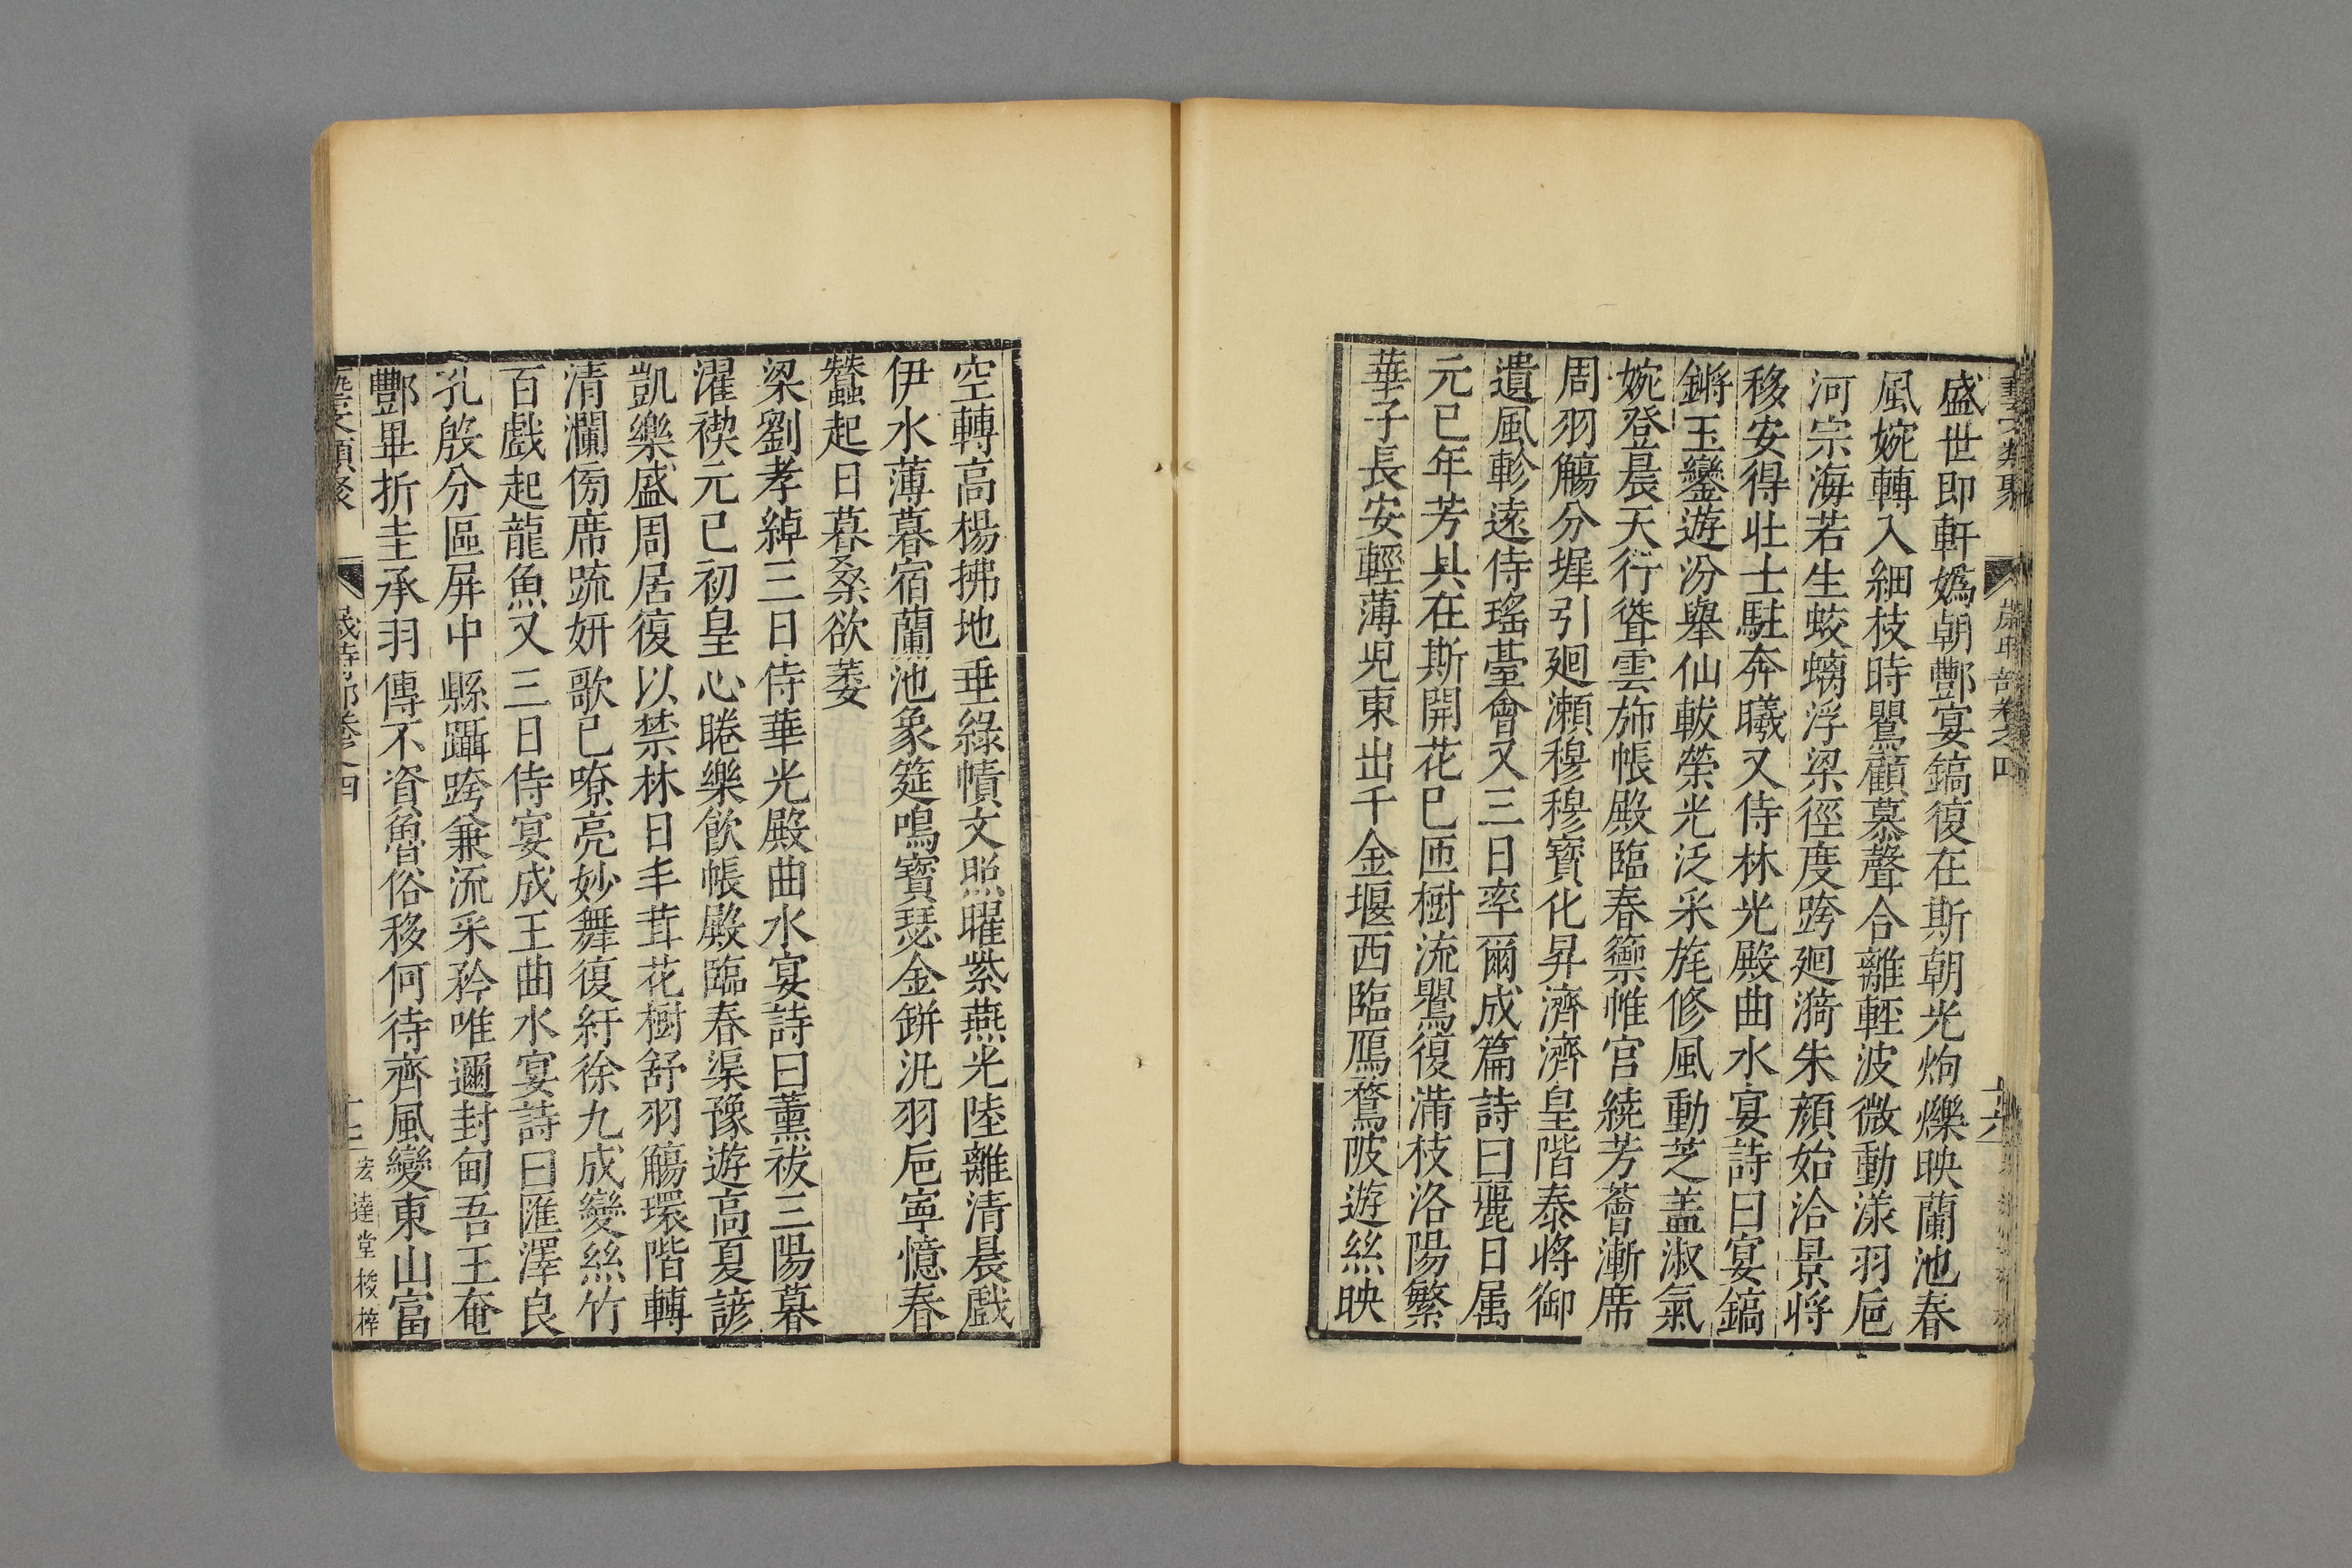 盛世即軒嬀朝酆宴鎬復在斯朝光炯爍映蘭池春
風婉轉入細枝時鸎顧慕聲合離輕波微動漾羽巵
河宗海若生蛟螭浮梁徑度跨廻漪朱顏始洽景將
移安得壯士駐奔曦又侍林光殿曲水宴詩曰宴鎬
鏘玉鑾遊汾舉仙軷榮光泛采旄修風動芝盖淑氣
婉登晨天行聳雲斾帳殿臨春籞帷宮繞芳薈漸席
周羽觴分墀引廻瀬穆穆寶化昇濟濟皇階泰將御
遺風軫遠侍瑤䑓會又三日率爾成篇詩曰麗日属
元巳年芳具在斯開花巳匝樹流鸎復滿枝洛陽繁
華子長安輕薄児東出千金堰西臨鴈鶩陂遊絲映
空轉高楊拂地垂綠幘文照曜紫燕光陸離清晨戲
伊水薄暮宿蘭池象筵鳴寶瑟金鉼汎羽巵寧憶春
蠶起日暮桑欲萎
梁劉孝綽三日侍華光殿曲水宴詩曰薫祓三陽暮
濯禊元巳初皇心睠樂飲帳殿臨春渠豫遊高夏諺
凱樂盛周居復以禁林日丰茸花樹舒羽觴環階轉
清瀾傍席䟽妍歌已嘹亮妙舞復紆徐九成變絲竹
百戲起龍魚又三日侍宴成王曲水宴詩曰匯澤良
孔殷分區屏中縣躡跨兼流采矜唯邇封甸吾王奄
酆畢折圭承羽傳不資魯俗移何待齊風變東山富
藝文類聚 歲時部卷之四 宏達堂校梓